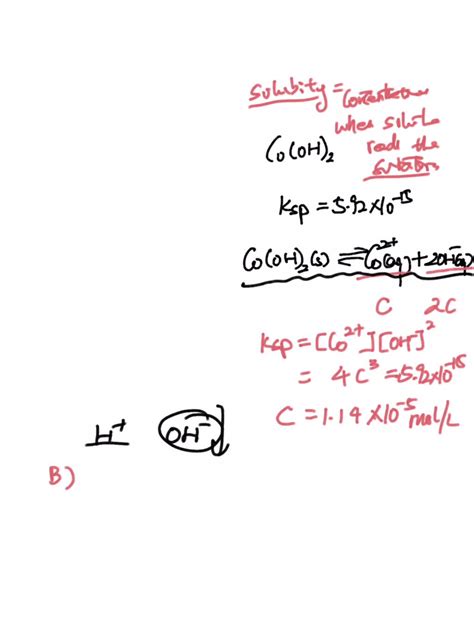 Solubity = Concentration
when solute
reach the
Co(OH)₂
Ksp = 5.92×10⁻¹⁵
Co(OH)₂(s) ⇌ Co²⁺(aq) + 2OH⁻(aq)
C 2C
Ksp = [Co²⁺][OH]²
= 4C³ = 5.92×10⁻¹⁵
C = 1.14 ×10⁻⁵ mol/L
H⁺ OH⁻]
B)